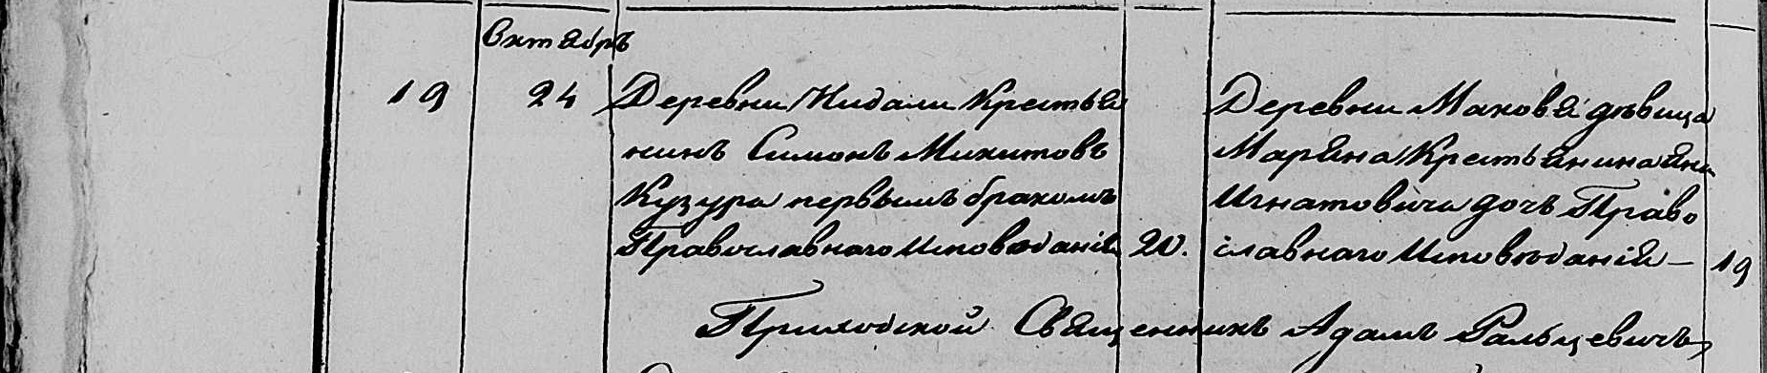 Октябрь
19 24 Деревни Кидали Крестья
нинъ Симонъ Микитовъ
Кузура первымъ бракомъ
Православнаго Исповѣданія 20.
Деревни Маковя дѣвица
Марьяна Крестьянина Яна
Игнатовича дочь Право
славнаго Исповѣданія — 19
Приходской Священникъ Адамъ Ральцевичъ